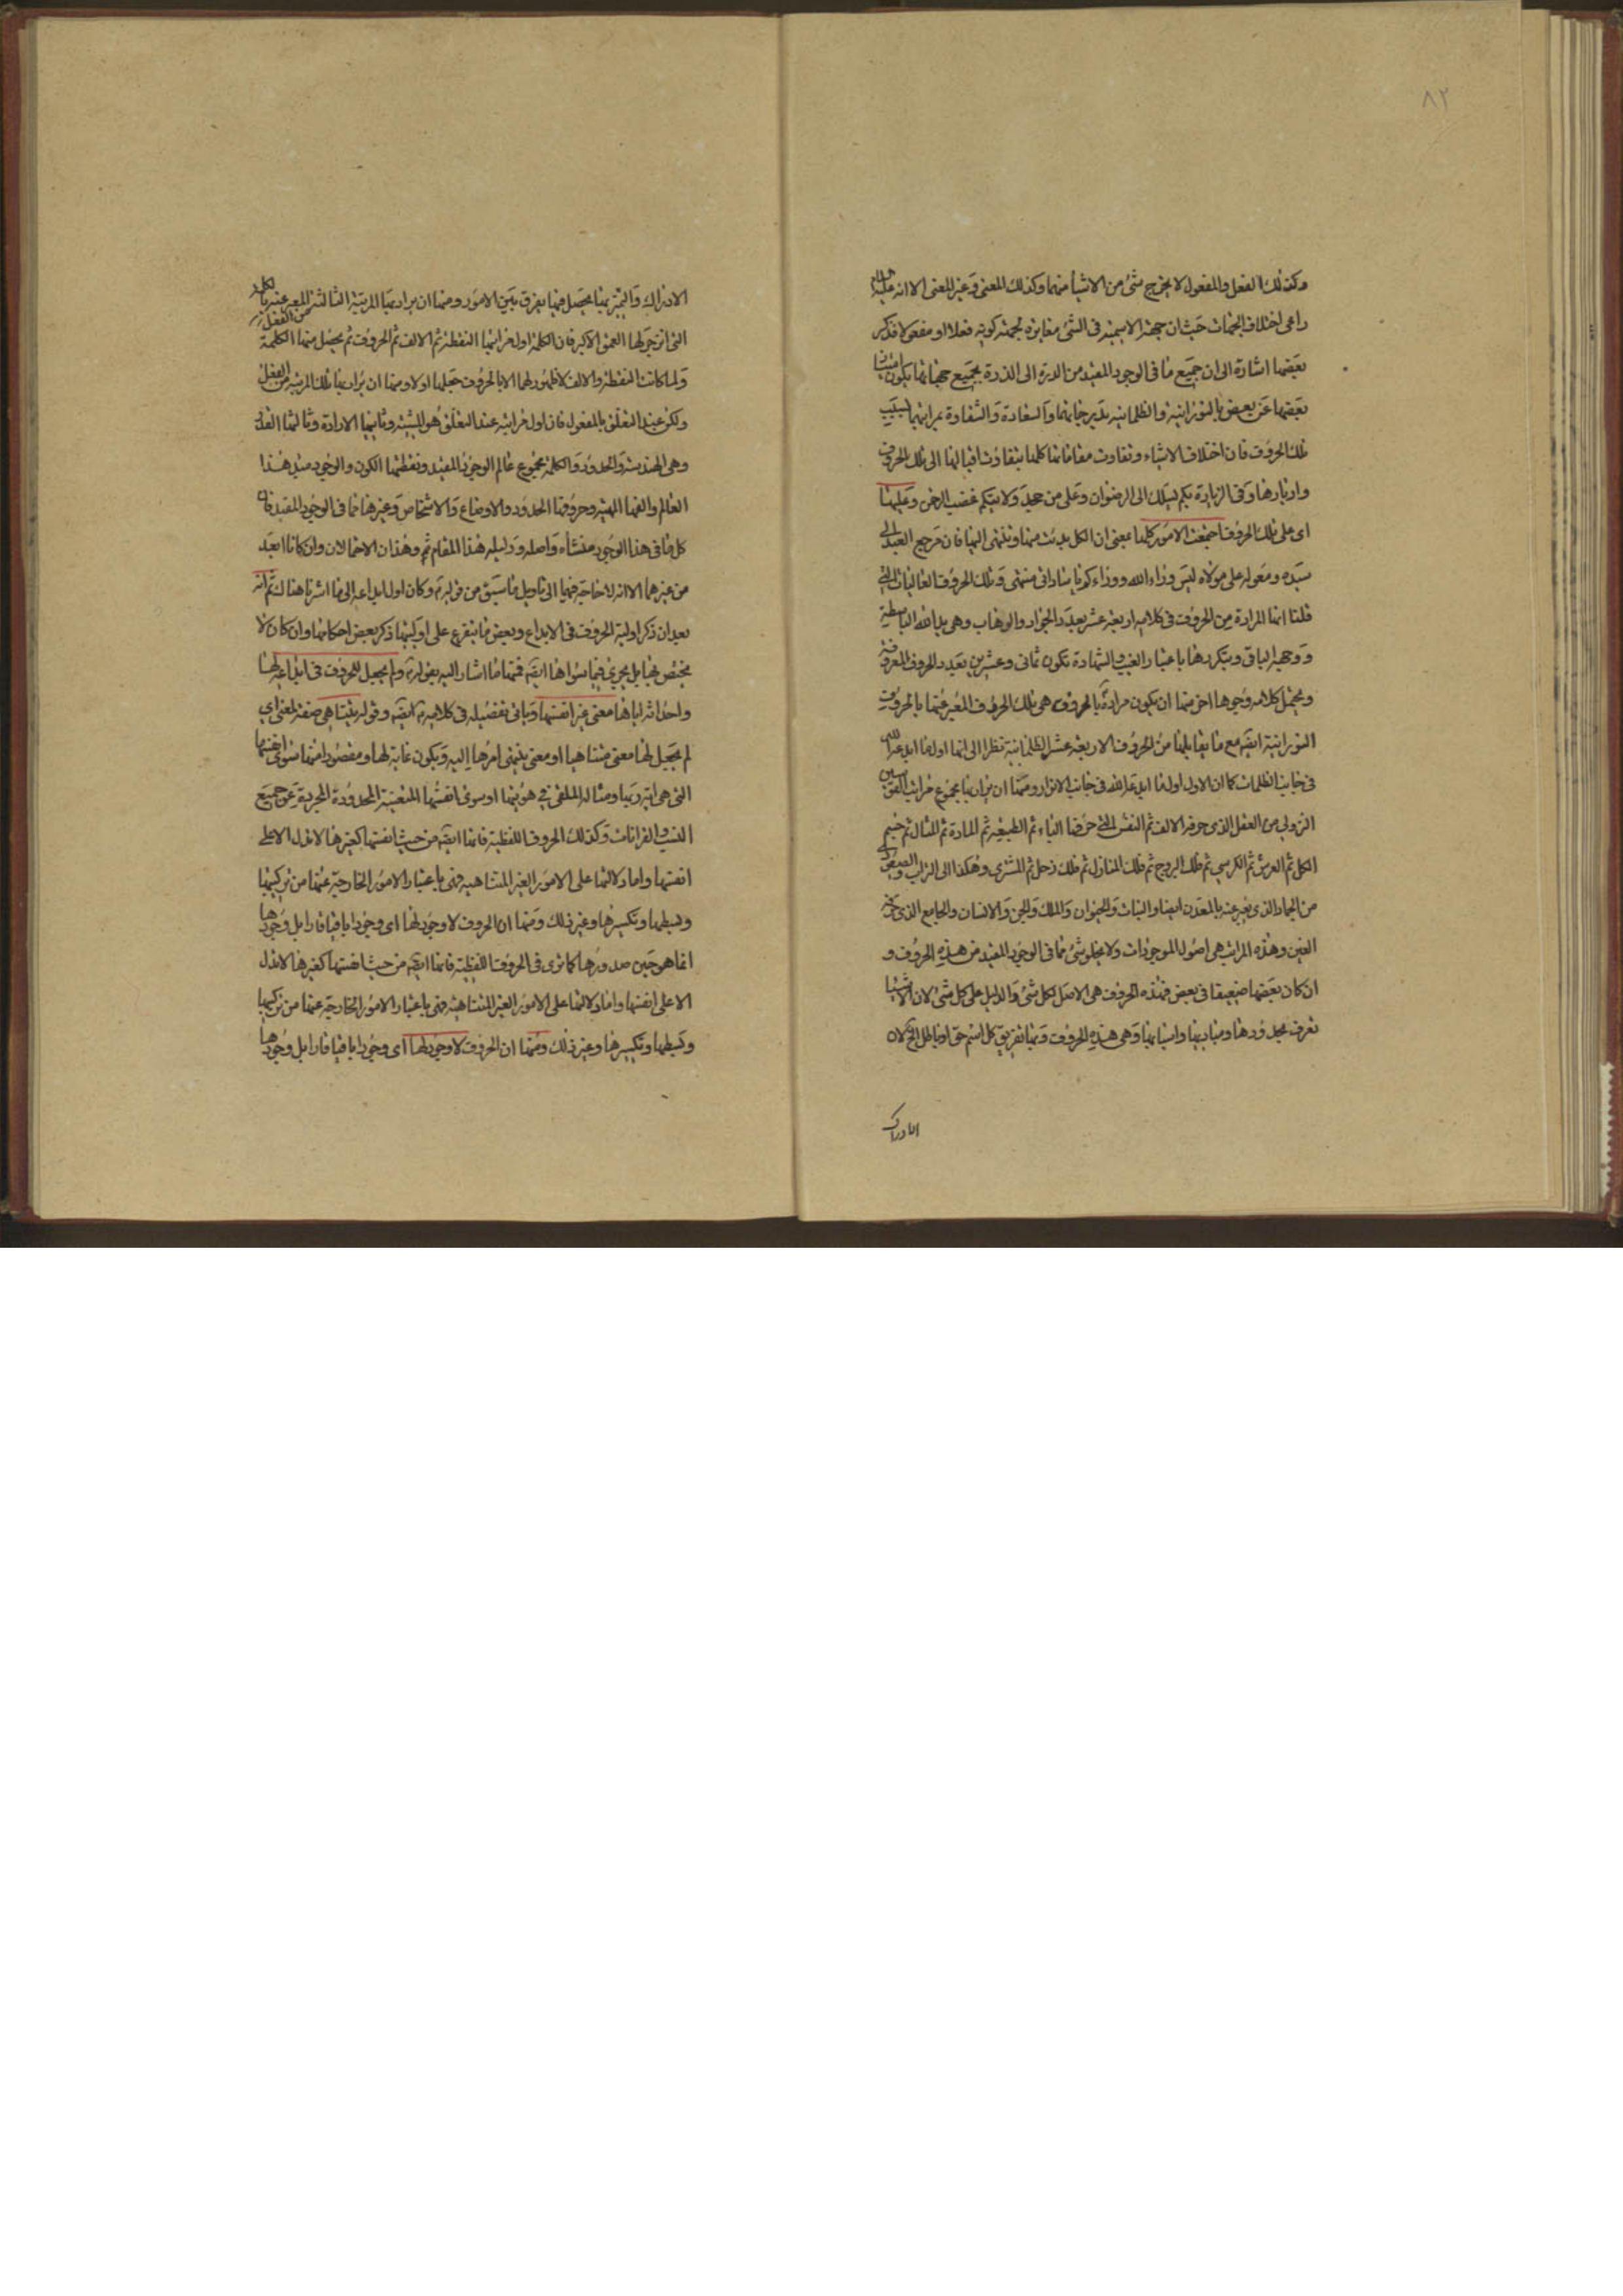 ٨٢
وكذلك الفعل والمفعول لا يخرج شئ من الاشياء منهما وكذلك المعنى وغير المعنى الا انه عليه السلام
راعى اختلاف الجهات حيث ان جهة الاسمية فى الشئ مغايرة لجهة كونه فعلا او مفعولا فذكر
بعضها اشارة الى ان جميع ما فى الوجود المقيد من الدرة الى الذرة بجميع جهاتها يكون
بعضها عن بعض بالنورانية والظلمانية بدرجاتهما والسعادة والشقاوة بمراتبهما بسبب
تلك الحروف فان اختلاف الاشياء وتفاوت مقاماتها كلها بتفاوت اقبالها الى تلك الحروف
وادبارها وفى الزيارة بكم يسلك الى الرضوان وعلى من جحد ولايتكم غضب الرحمن وعليها
اى على تلك الحروف اجتمعت الامور كلها بمعنى ان الكل بدئت منها وتنتهى اليها فان مرجع العبد الى
سيده ومعوله على مولاه ليس وراء الله ووراءكم يا ساداتى منتهى وتلك الحروف العاليات التى
قلنا انها المرادة من الحروف فى كلامه اربعة عشر بعدد الجواد والوهاب وهى يد الله الباسطة
ووجهه الباقى وبتكررها باعتبار الغيب والشهادة تكون ثمانى وعشرين بعدد الحروف المعروفة
ويحتمل كلامه وجوها اخر منها ان يكون مراده بالحروف هى تلك الحروف المعبر عنها بالحروف
النورانية ايضا مع ما يقابلها من الحروف الاربعة عشر الظلمانية نظرا الى انها اول ما ابدعه الله
فى جانب الظلمات كما ان الاول اول ما ابدعه الله فى جانب الانوار ومنها ان يراد بها مجموع مراتب القوس
النزولى من العقل الذى حرفه الالف ثم النفس التى حرفها الباء ثم الطبيعة ثم المادة ثم المثال ثم جسم
الكل ثم العرش ثم الكرسى ثم فلك البروج ثم فلك المنازل ثم فلك زحل ثم المشترى وهكذا الى التراب
من الجماد الذى يعبر عنه بالمعدن ايضا والنبات والحيوان والملك والجن والانسان والجامع الذى حرفه
الغين وهذه المراتب هى اصول الموجودات ولا يخلو شئ مما فى الوجود المقيد من هذه الحروف و
ان كان بعضها ضعيفا فى بعض فهذه الحروف هى الاصل لكل شئ والدليل على كل شئ لان الاشياء
تعرف بحدودها ومباديها واسبابها وهى هذه الحروف وبها تفريق كل اسم حق او باطل الخ لان
الادراك
الادراك والتميز بها يحصل فبها يفرق بين الامور ومنها ان يراد بها المرتبة الثالثة من الفعل المعبر عنه بالكلمة
التى انزجر لها العمق الاكبر فان الكلمة اول مراتبها النقطة ثم الالف ثم الحروف ثم يحصل منها الكلمة
ولما كانت النقطة والالف لا ظهور لهما الا بالحروف جعلها اولا ومنها ان يراد بها تلك المرتبة من الفعل
ولكن عند التعلق بالمفعول فان اول مراتبه عند التعلق هو المشية وثانيها الارادة وثالثها القدر
وهى الهندسة والحدود والكلمة مجموع عالم الوجود المقيد ونقطتها الكون والوجود مبدء هذا
العالم والفها المهية وحروفها الحدود والاوضاع والاشخاص وغيرها مما فى الوجود المقيد فان
كل ما فى هذا الوجود منشأه واصله ودليله هذا المقام ثم وهذان الاحتمالان وان كانا ابعد
من غيرهما الا انه لا حاجة فيهما الى تاويل ما سبق من قوله وكان اول ابداعه الى ما اشرنا هناك ثم انه
بعد ان ذكر اولية الحروف فى الابداع وبعض ما يتفرع على اوليتها ذكر بعض احكامها وان كان لا
يختص بها بل يجرى فيما سواها ايضا فمنها ما اشار اليه بقوله ولم يجعل للحروف فى ابداعه لها
واحداثه اياها معنى غير انفسها وياتى تفصيله فى كلامه ايضا وقوله يتناهى صفة لمعنى اى
لم يجعل لها معنى متناهيا او معنى ينتهى امرها اليه ويكون غاية لها ومقصودا منها سوى انفسها
التى هى اية ربها ومثاله الملقى فى هويتها او سوى انفسها المتعينة المحدودة المجردة عن جميع
النسب والقرانات وكذلك الحروف اللفظية فانها ايضا من حيث انفسها كغيرها لا تدل الا على
انفسها واما دلالتها على الامور الغير المتناهية فهى باعتبار الامور الخارجية عنها من تركيبها
وبسطها وتكسيرها وغير ذلك ومنها ان الحروف لا وجود لها اى وجودا باقيا قارا بل وجودها
انما هو حين صدورها كما ترى فى الحروف اللفظية فانها ايضا من حيث انفسها كغيرها لا تدل
الا على انفسها واما دلالتها على الامور الغير المتناهية فهى باعتبار الامور الخارجية عنها من تركيبها
وبسطها وتكسيرها وغير ذلك ومنها ان الحروف لا وجود لها اى وجودا باقيا قارا بل وجودها